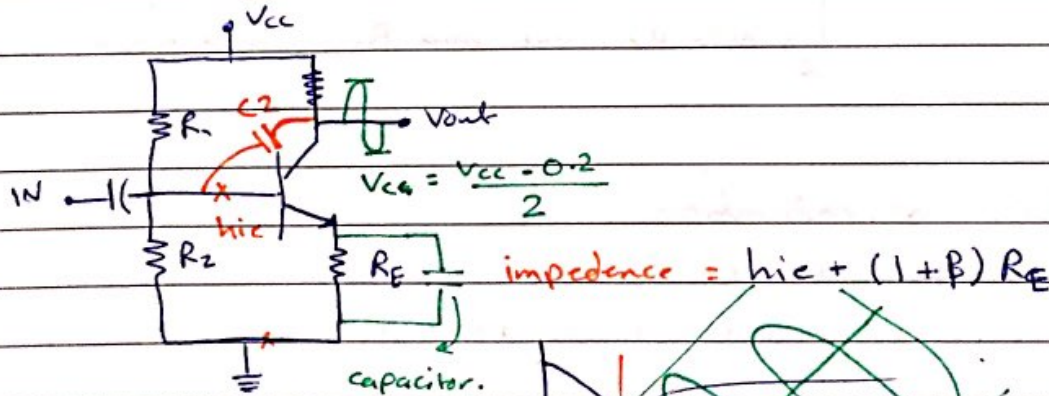 Vcc
C2
R1
Vout
IN
hie
VCEQ = Vcc - 0.2 / 2
R2
RE
impedence = hie + (1+β) RE
capacitor.